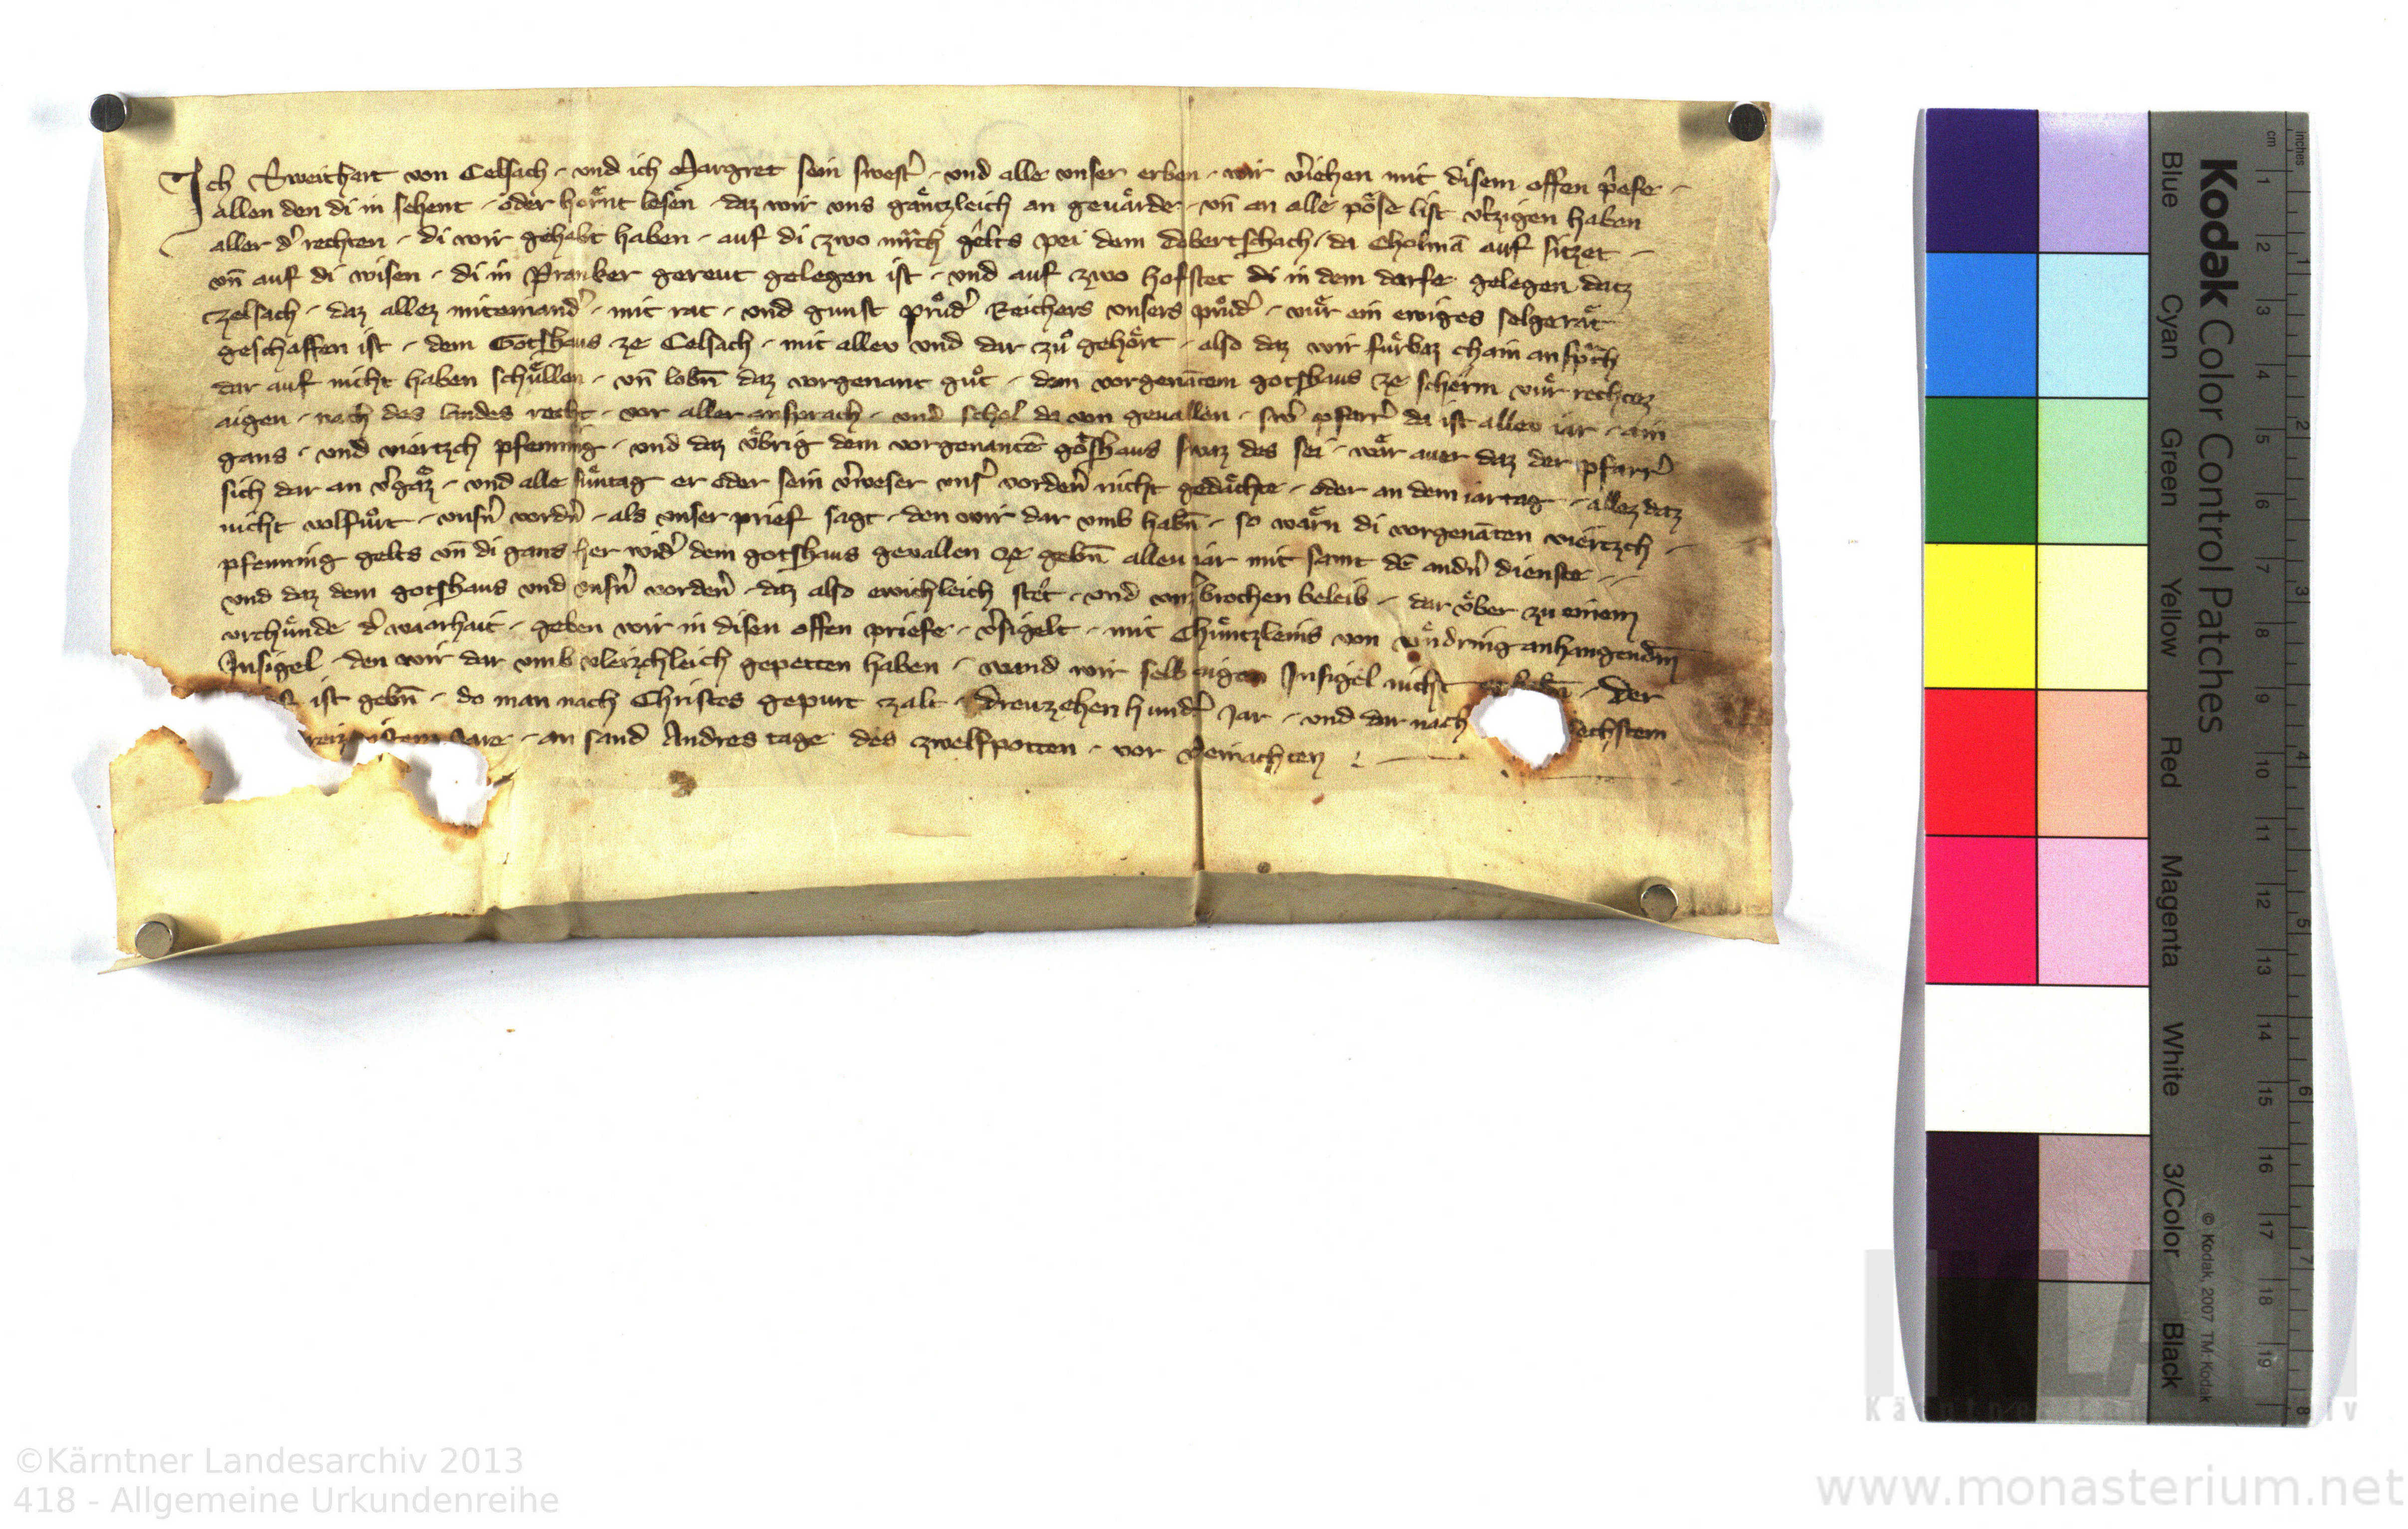 Ich Sweichart von Celsach · und ich Margret sein swest̾ · und alle unser erben · wir v̾iehen mit disem offen p̾efe ·
allen den di in sehent · oder hoͤrnt lesen · daz wir uns gaͤntzleich an geuaͤrde · vn̄ an alle poͤse list v̾tzigen haben
aller d̾ rechten · di wir gehabt haben · auf di zwo march gelts pei dem dobertschach · da Cholmā auf sitzet ·
vn̄ auf di wisen · di in Pranker gereut gelegen ist · und auf zwo hofstet di in dem dorfe gelegen datz
Czelsach · daz allez miteinand̾ · mit rat · und gunst pruͦd̾ Reichers unsers pruͦd̾ · vuͤr ein ewiges selgeraͤt
geschaffen ist · dem Gotshaus ze Celsach · mit alleu und dar zuͦ gehoͤrt · also daz wir fuͤrbaz chain ansp̾ch
dar auf nicht haben schuͤllen · vn̄ lobn̄ daz vorgenant guͦt · dem vorgenātem gotshaus ze scherm vuͤr rechtez
aigen · nach des landes recht · vor aller ansprach · und schol da von geuallen · sw̾ pfarr̾ da ist alleu iar · ain
gans · und viertzch pfenning · und daz uͤbrig dem vorgenantē goͤshaus swaz des sei · waͤr auer daz der pfarr̾
sich dar an v̾gaͤz · und alle suͤntag er oder sein v̾weser uns̾ vorden̾ nicht gedaͤchte · oder an dem iartag · allez daz
nicht volfuͤrt · unsn̾ vordn̾ · als unser prief sagt · den wir dar umb habn̄ · so waͤrn di vorgenāten viertzch ·
pfenning gelts vn̄ di gans her wid̾ dem gotshaus geuallen ze gebn̄ alleu iar mit samt dē andn̾ dienste · ·
und daz dem gotshaus und unsn̾ vorden̾ · daz also ewichleich stet · und unzbrochen beleib · dar uͤber zu einem
urchuͤnde d̾ waarhait · geben wir in disen offen priefe · v̾sigelt · mit Chuͤntzleins von vuͤndring anhangendm̄
Insigel · den wir dar umb vleizchleich gepetten haben · wand wir selb aigen Insigel nicht · Der
ist gebn̄ · do man nach Christes gepurt zalt · Dreuzehen hundt̾ Jar · und dar nach echstem
Jare · an sand Andres tage des zwelfpotten · vor Weinachten :
Kodak Color Control Patches
Blue Cyan Green Yellow Red Magenta White 3/Color Black
inches 1 2 3 4 5 6 7 8
cm 1 2 3 4 5 6 7 8 9 10 11 12 13 14 15 16 17 18 19
© Kodak, 2007 TM: Kodak
©Kärntner Landesarchiv 2013
418 - Allgemeine Urkundenreihe
www.monasterium.net